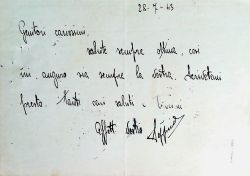 28-7-43
Genitori carissimi,
salute sempre ottima, così
mi auguro sia sempre la vostra. Scrivetemi
presto. Tanti cari saluti e bacioni
Aff.tt vostro